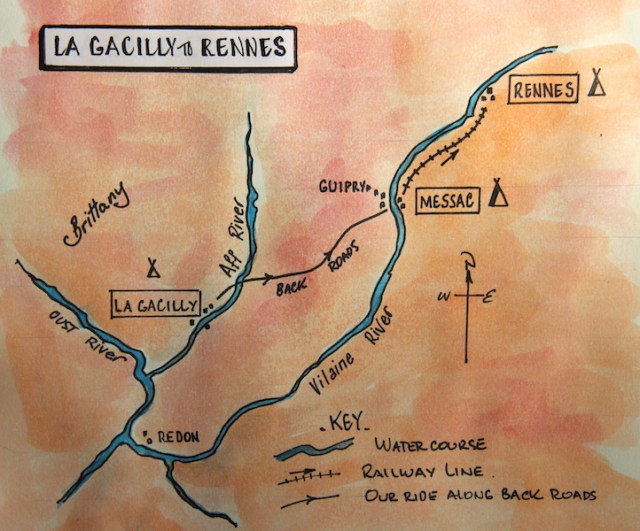 LA GACILLY TO RENNES
RENNES
GUIPRY
MESSAC
Brittany
Aff River
BACK ROADS
N
W E
LA GACILLY
OUST RIVER
Vilaine River
REDON
KEY
WATERCOURSE
RAILWAY LINE
OUR RIDE ALONG BACK ROADS